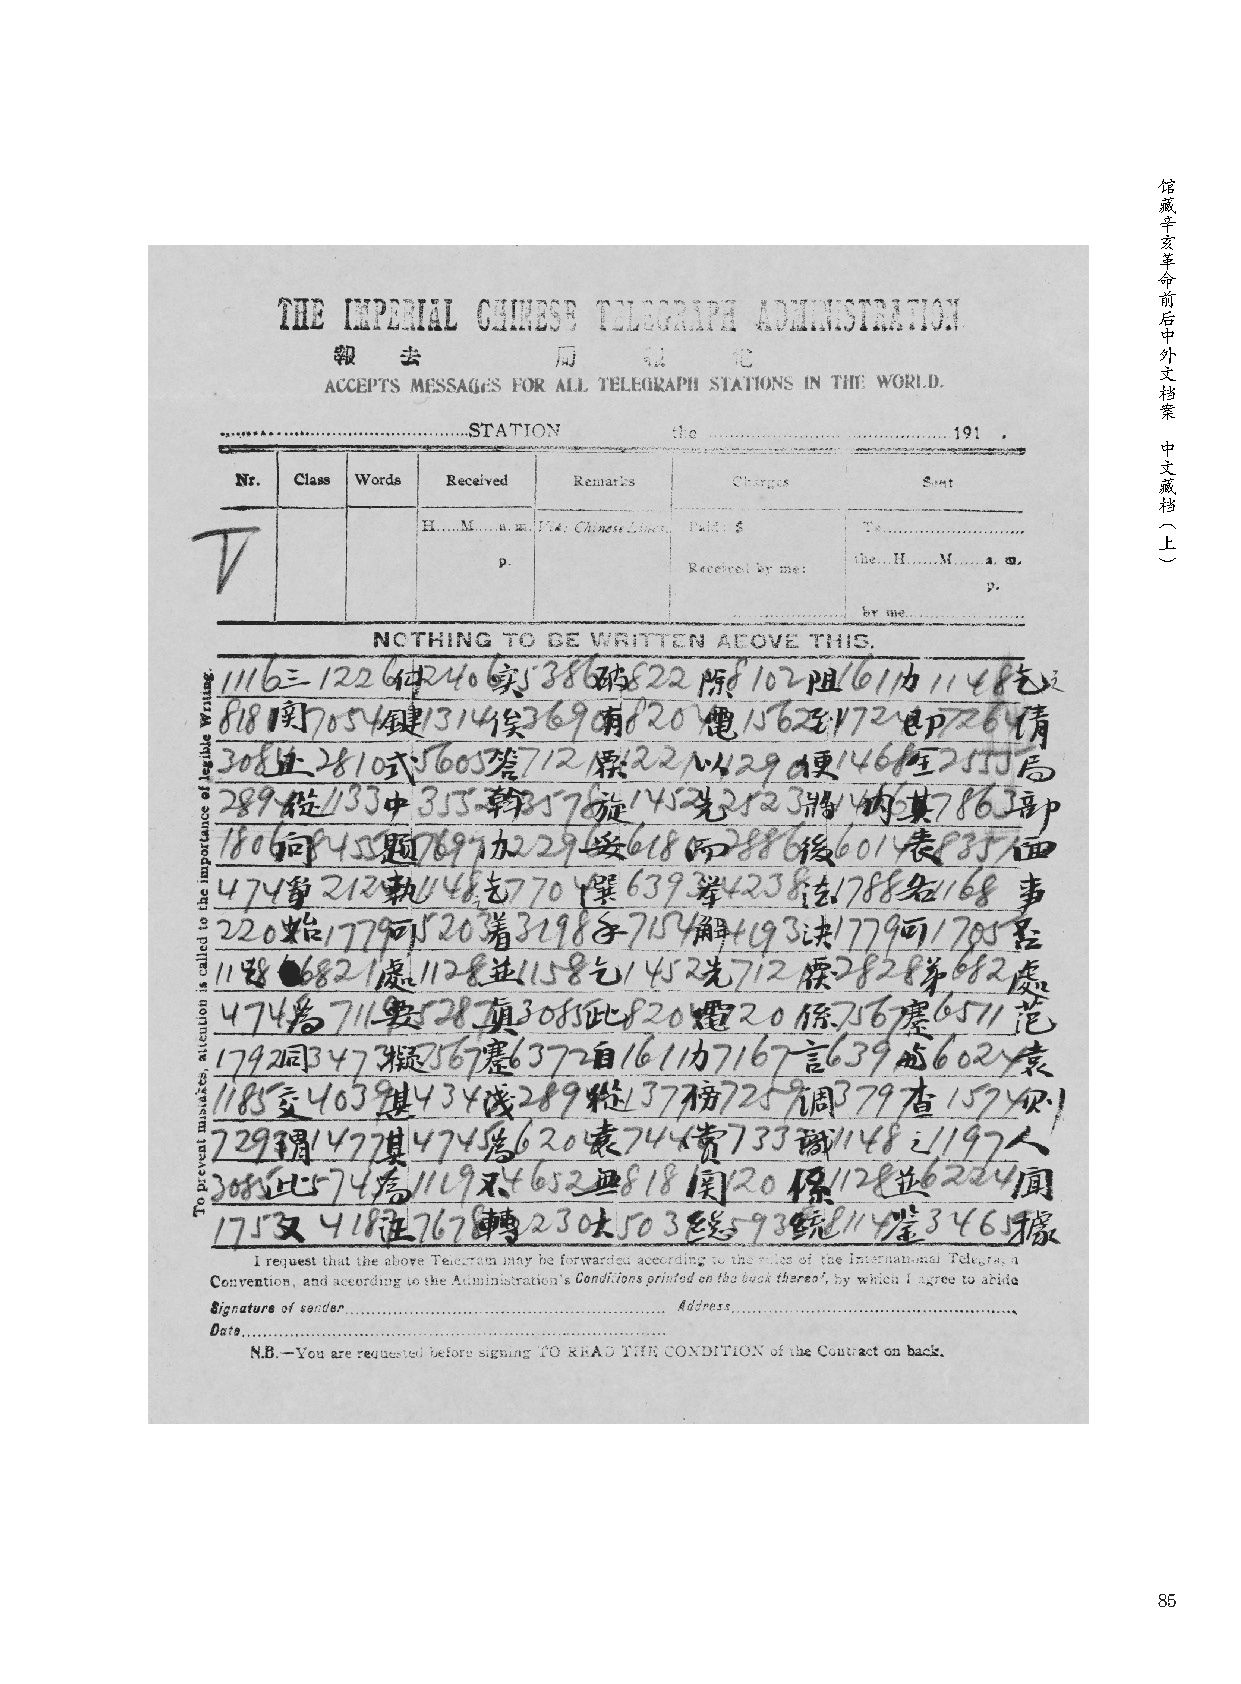 馆藏辛亥革命前后中外文档案 中文藏档（上）
THE IMPERIAL CHINESE TELEGRAPH ADMINISTRATION.
報 去 局 報 電
ACCEPTS MESSAGES FOR ALL TELEGRAPH STATIONS IN THE WORLD.
STATION the 191 .
Nr. Class Words Received Remarks Charges Sent
H.....M.....a. m. Via: Chinese Lines. Paid: $ To
p. Received by me: the...H......M......a. m.
p.
by me
T
NOTHING TO BE WRITTEN ABOVE THIS.
To prevent mistakes, attention is called to the importance of legible Writing.
1116三 1226 2406实 5386破 822 除 8102阻 1611力 1148乞
818関 7054鍵 1314俟 3690有 820電 1562到 1724即 7264情
3085止 2810式 5605答 712 122以 1290便 1468至 2555局
2894從 1133中 3552斡 3578旋 1452先 2523將 1462其 7863部
1806向 8455題 7697办 2296妥 618而 2886後 6014表 8357面
474事 2124執 1148乞 7704選 6393举 4238法 1788名 1168事
220始 1779可 5203着 3198手 7154解 4193決 1779可 1705否
1128 6821處 1128並 1158乞 1452先 712 2828第 682處
4745為 7119要 5287真 3085此 820電 120係 7567蹇 6511范
1792同 3473擬 7567蹇 6372自 1611力 7167言 639與 6024袁
1185交 4039甚 434淺 2894縱 1377傍 7259调 379查 1574
7293謂 1477其 4745為 6204袁 7444赏 7733識 1148之 1197人
3085此 5745為 1119不 4652無 818関 120係 1128並 6224聞
1753又 4182注 7678轉 2304大 503総 593統 8114鉴 3465據
I request that the above Telegram may be forwarded according to the rules of the International Telegraph
Convention, and according to the Administration's Conditions printed on the back thereof, by which I agree to abide
Signature of sender Address
Date
N.B.—You are requested before signing TO READ THE CONDITION of the Contract on back.
85